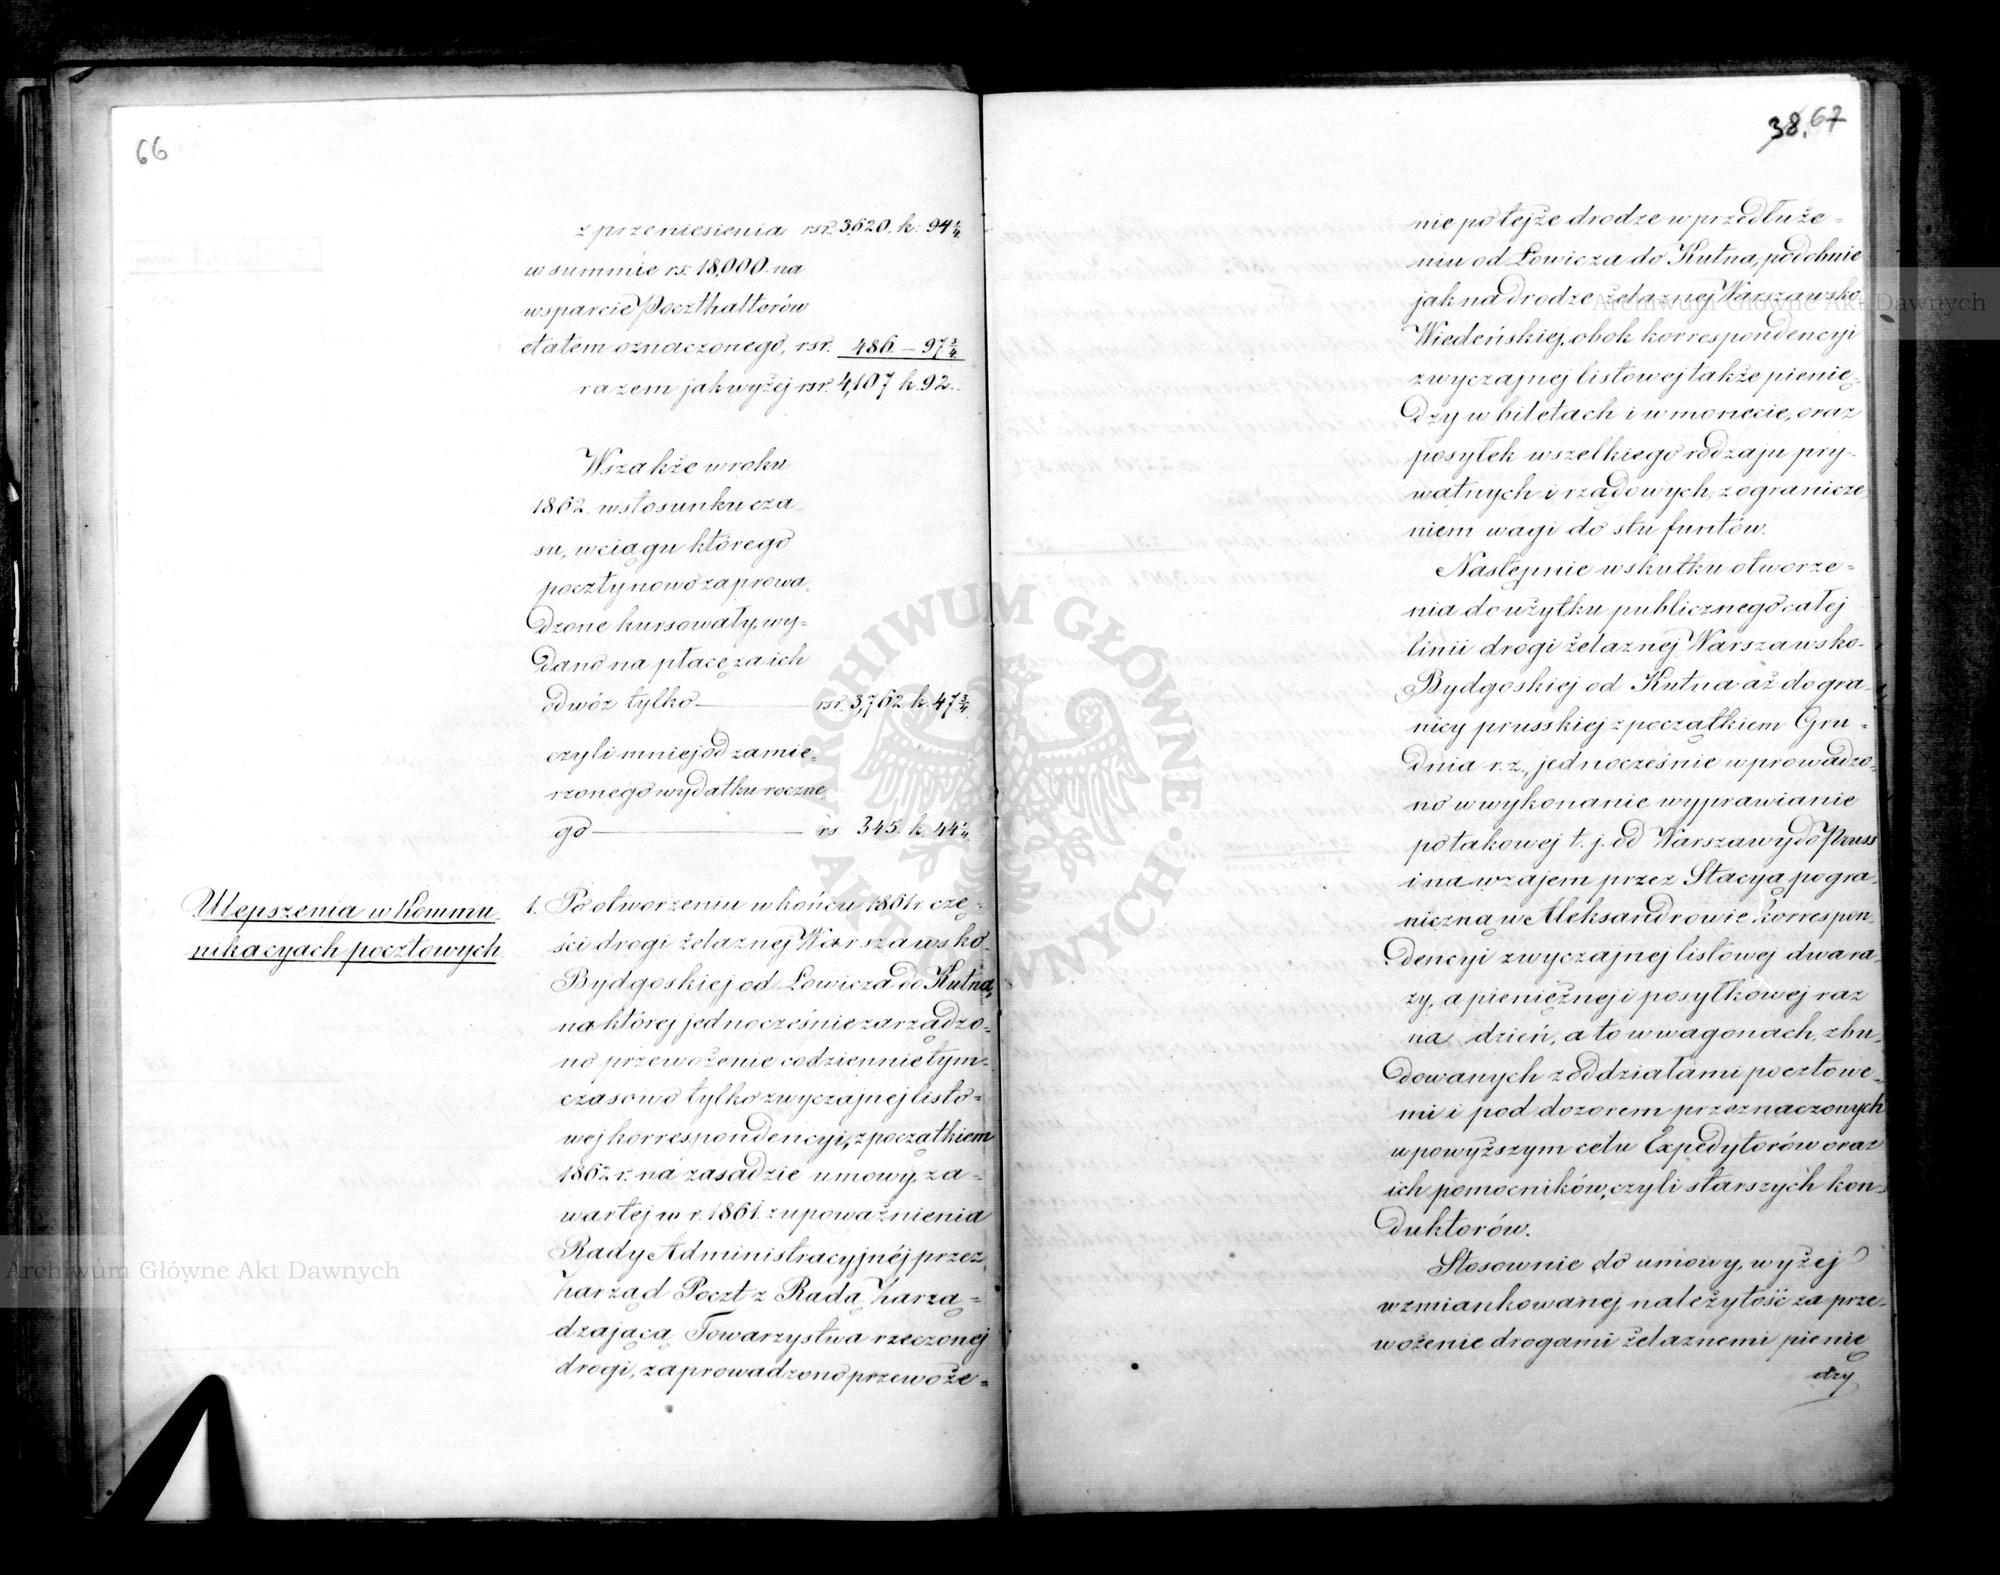 66
z przeniesienia rsr. 3,620. k. 94 1/4
w summie rs. 18,000. na
wsparcie Poczthalterów
etatem oznaczonego, rsr. 486 – 97 3/4
razem jak wyżej rsr. 4,107 k. 92.
Wszakże w roku
1862. w stosunku cza-
su, w ciągu którego
poczty nowo zaprowa-
dzone kursowały, wy-
dano na płacę za ich
odwóz tylko rsr. 3,762 k. 47 3/4
czyli mniej od zamie-
rzonego wydatku roczne-
go rs. 345. k. 44 1/4
Ulepszenia w Kommu-
nikacyach pocztowych.
1. Po otworzeniu w końcu 1861 r. czę-
ści drogi żelaznej Warszawsko-
Bydgoskiej od Łowicza do Kutna,
na której jednocześnie zarządzo-
no przewożenie codziennie tym-
czasowo tylko zwyczajnej listo-
wej korrespondencyi, z początkiem
1862 r. na zasadzie umowy, za-
wartej w r. 1861. z upoważnienia
Rady Administracyjnéj przez
Zarząd Poczt z Radą Zarzą-
dzającą Towarzystwa rzeczonej
drogi, zaprowadzono przewoże-
38. 67
nie po tejże drodze w przedłuże-
niu od Łowicza do Kutna, podobnie
jak na drodze żelaznej Warszawsko
Wiedeńskiej, obok korrespondencyi
zwyczajnej listowej także pienię-
dzy w biletach i w monecie, oraz
posyłek wszelkiego rodzaju pry-
watnych i rządowych, z ogranicze-
niem wagi do stu funtów.
Następnie w skutku otworze-
nia do użytku publicznego całej
linii drogi żelaznej Warszawsko-
Bydgoskiej od Kutna aż do gra-
nicy prusskiej z początkiem Gru-
dnia r. z., jednocześnie wprowadzo-
no w wykonanie wyprawianie
po takowej t. j. od Warszawy do Pruss
i na wzajem przez Stacyą pogra-
niczną w Aleksandrowie korrespon-
dencyi zwyczajnej listowej dwa ra-
zy, a pieniężnej i posyłkowej raz
na dzień, a to w wagonach, zbu-
dowanych z oddziałami pocztowe-
mi i pod dozorem przeznaczonych
w powyższym celu Expedytorów oraz
ich pomocników, czyli starszych kon-
duktorów.
Stosownie do umowy, wyżej
wzmiankowanej należytość za prze-
wożenie drogami żelaznemi pienię
dzy
ARCHIWUM GŁÓWNE AKT DAWNYCH
Archiwum Główne Akt Dawnych
Archiwum Główne Akt Dawnych